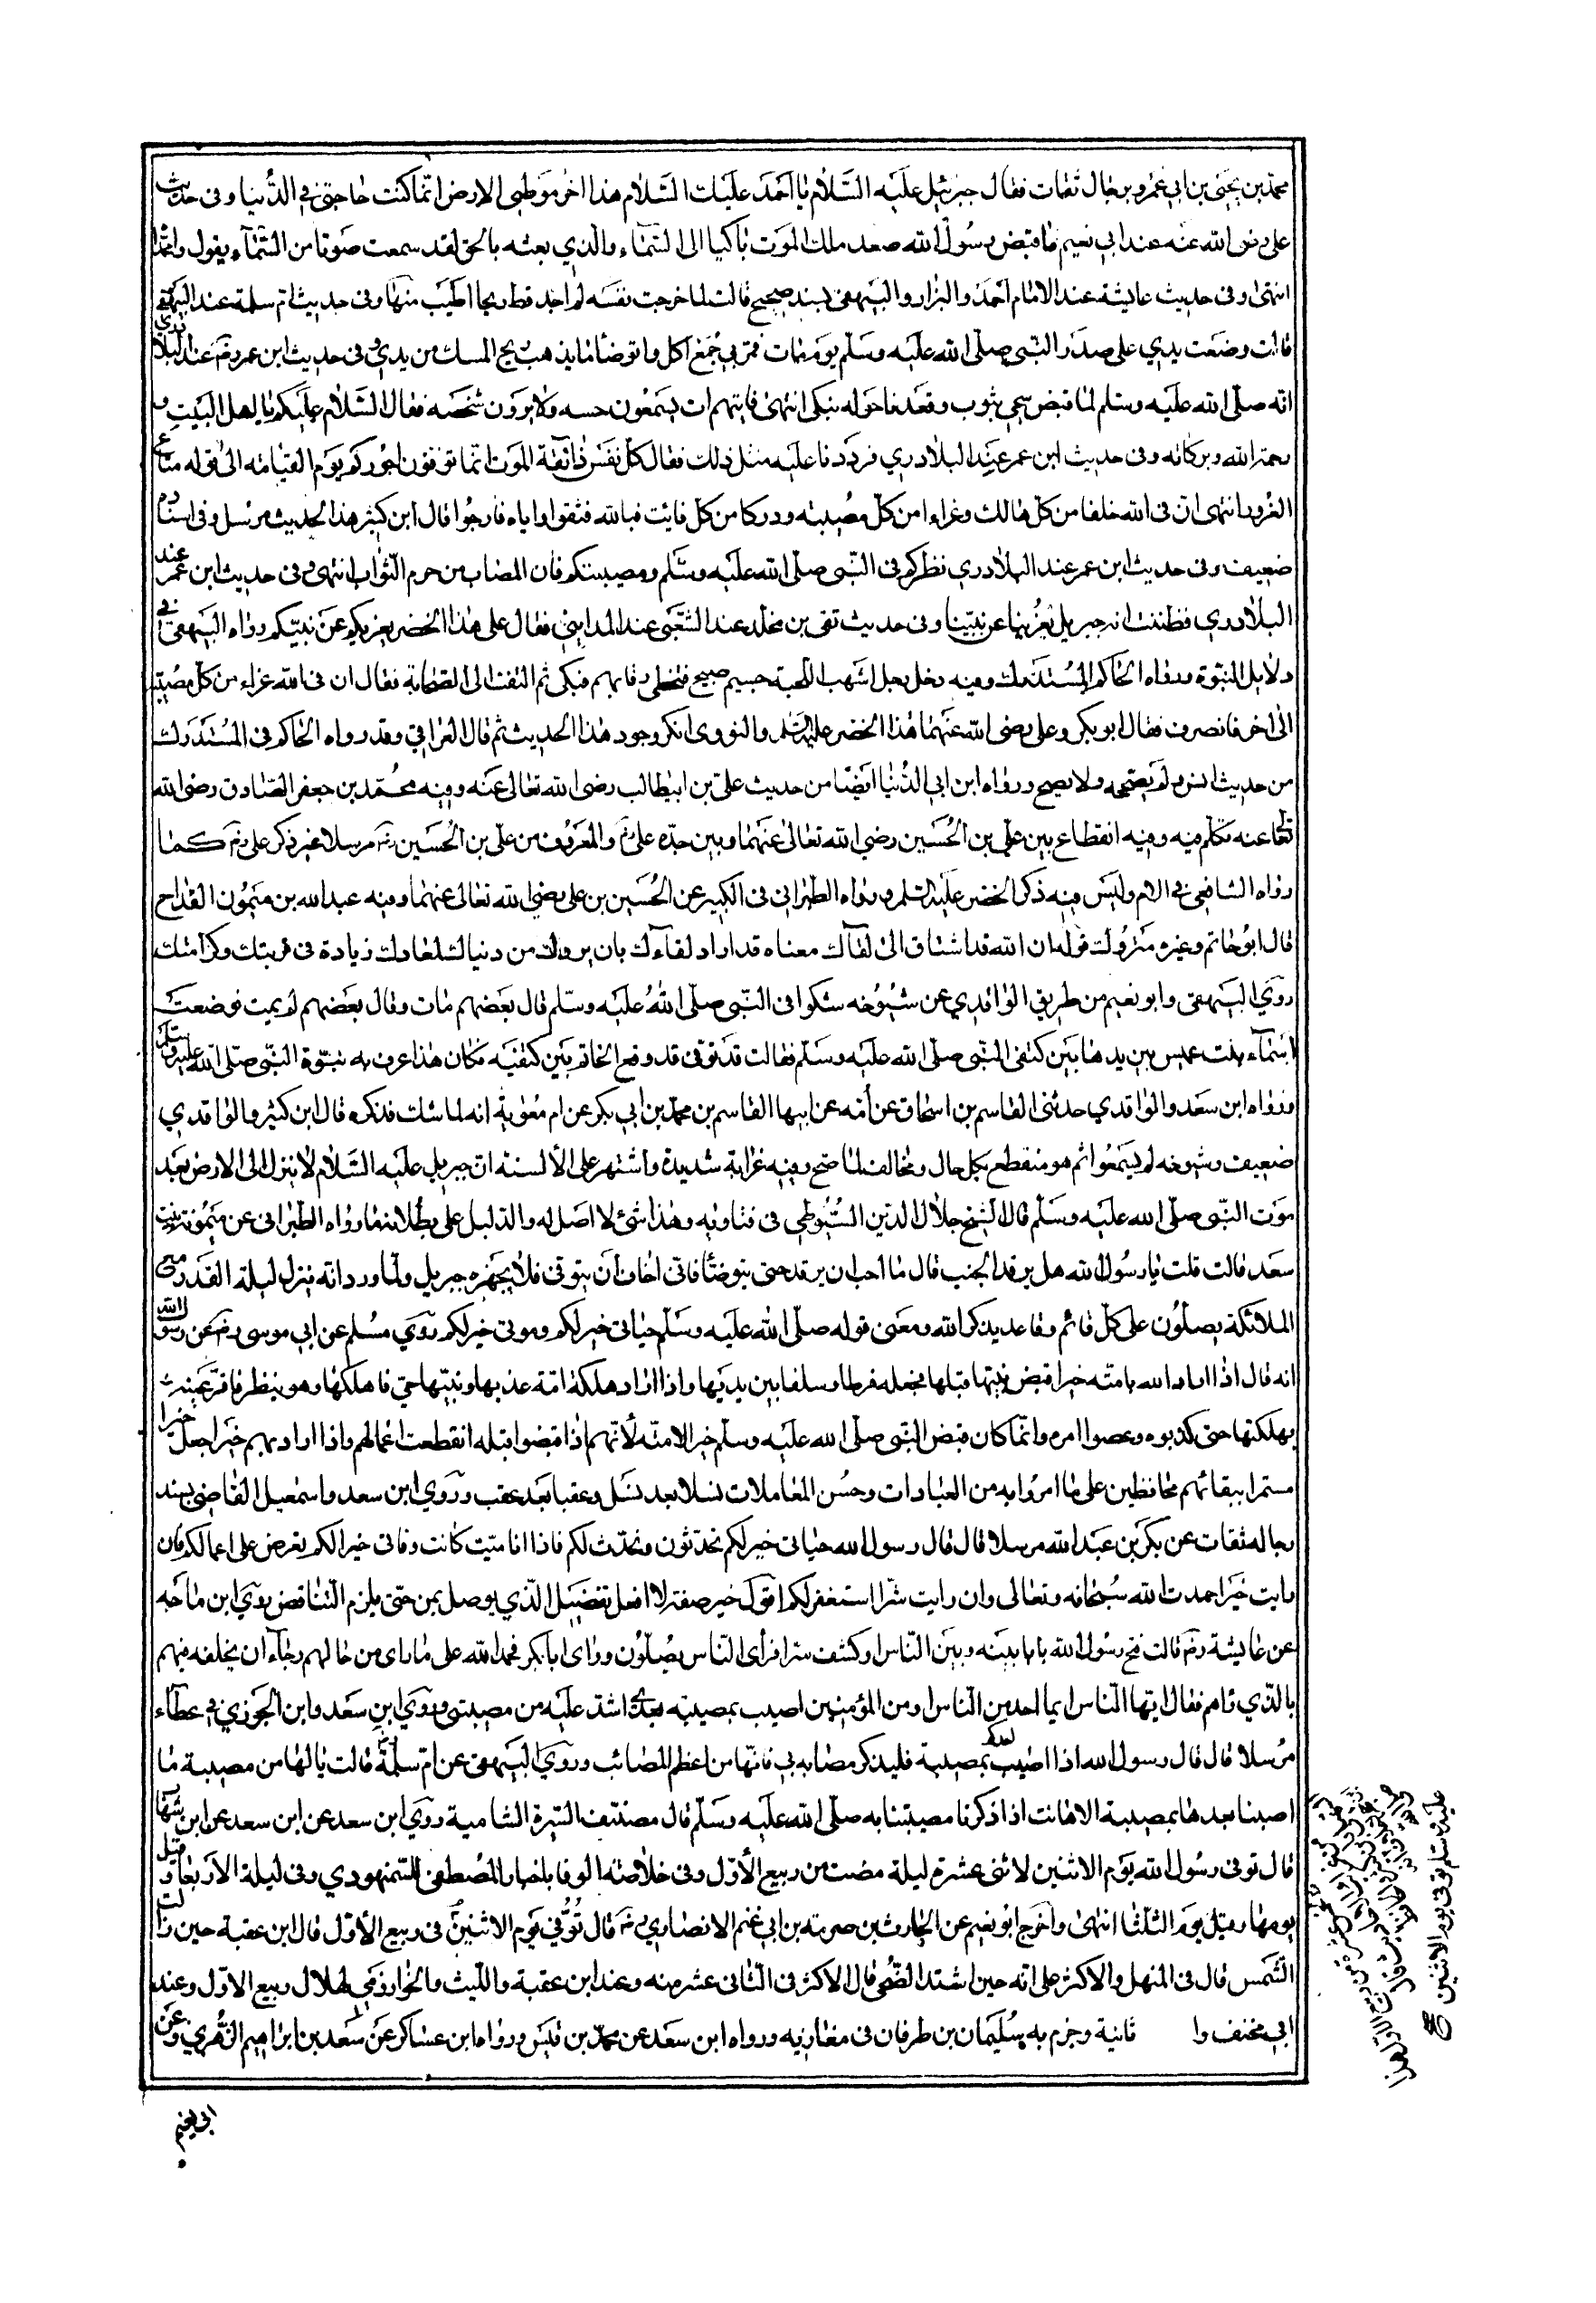 محمد بن يحيى بن ابي عمرو برجال ثقات فقال جبرئيل عليه السلام يا احمد عليك السلام هذا اخر موطئي الارض انما كنت حاجتي في الدنيا وفى حديث
على رضى الله عنه عند ابي نعيم لما قبض رسول الله صعد ملك الموت باكيا الى السماء والذي بعثه بالحق لقد سمعت صوتا من السماء يقول وا محمدا
انتهى وفى حديث عايشة عند الامام احمد والبزار والبيهقى بسند صحيح قالت لما خرجت نفسه لم اجد قط ريحا اطيب منها وفى حديث ام سلمة عند البيهقي
قالت وضعت يدي على صدر النبي صلى الله عليه وسلم يوم مات فمر بي جمع اكل واتوضأ ما يذهب ريح المسك من يدي وفى حديث ابن عمر رضه عند البلادري
انه صلى الله عليه وسلم لما قبض سجي بثوب وقعدنا حوله نبكي انتهى فاتيهم ات يسمعون حسه ولا يرون شخصه فقال السلام عليكم يا اهل البيت و
رحمة الله وبركاته وفى حديث ابن عمر عند البلادري فرددنا عليه مثل ذلك فقال كل نفس ذائقة الموت انما توفون اجوركم يوم القيامه الى قوله متاع
الغرور انتهى ان فى الله خلفا من كل هالك وعزاء من كل مصيبة ودركا من كل فايت فبالله فثقوا واياه فارجوا قال ابن كثير هذا الحديث مرسل وفى اسناده
ضعيف وفى حديث ابن عمر عند البلادري نظركم فى النبي صلى الله عليه وسلم ومصيبتكم فان المصاب من حرم الثواب انتهى وفى حديث ابن عمر عند
البلادري فظننت انه جبريل يعزينا عن نبينا وفى حديث تقى بن مخلد عند الشعبى عند المدايني فقال على هذا الخضر يعزيكم عن نبيكم رواه البيهقي في
دلايل النبوة ورواه الحاكم المستدرك وفيه دخل رجل اشهب اللحية جسيم صبيح فتخطى رقابهم فبكى ثم التفت الى الصحابة فقال ان فى الله عزاء من كل مصيبة
الى اخر فانصرف فقال ابو بكر وعلى رضى الله عنهما هذا الخضر عليه السلم والنووى انكر وجود هذا الحديث ثم قال العراقي وقد رواه الحاكم فى المستدرك
من حديث انس ولم يصححه ولا يصح ورواه ابن ابي الدنيا ايضا من حديث علي بن ابيطالب رضى الله تعالى عنه وفيه محمد بن جعفر الصادق رضى الله
تعالى عنه تكلم فيه وفيه انقطاع بين علي بن الحسين رضي الله تعالى عنهما وبين جده على رضه والمعروف من علي بن الحسين رضه مرسلا غير ذكر على رضه كما
رواه الشافعي في الام وليس فيه ذكر الخضر عليه السلم ورواه الطبراني فى الكبير عن الحسين بن على رضي الله تعالى عنهما وفيه عبد الله بن ميمون القداح
قال ابو حاتم وغيره متروك قوله ان الله قد اشتاق الى لقائك معناه قد اراد لقاءك بان يردك من دنياك لمعادك زيادة فى قربتك وكرامتك
روى البيهقى وابو نعيم من طريق الواقدي عن شيوخه شكوا فى النبي صلى الله عليه وسلم قال بعضهم مات وقال بعضهم لم يمت فوضعت
اسماء بنت عميس بين يدها بين كتفى النبي صلى الله عليه وسلم فقالت قد توفى قد رفع الخاتم بين كتفيه فكان هذا عرف به نبوة النبي صلى الله عليه وسلم
ورواه ابن سعد والواقدي حدثنى القاسم بن اسحاق عن امه عن ابيها القاسم بن محمد بن ابي بكر عن ام معوية انه لما شك فذكره قال ابن كثير والواقدي
ضعيف وشيوخه لم يسموا ثم هو منقطع بكل حال ومخالف لما صح وفيه غرابة شديدة واشتهر على الالسنة ان جبريل عليه السلام لا ينزل الى الارض بعد
موت النبي صلى الله عليه وسلم قال الشيخ جلال الدين السيوطي فى فتاويه وهذا شئ لا اصل له والدليل على بطلانه ما رواه الطبرانى عن ميمونة بنت
سعد قالت قلت يا رسول الله هل يرقد الجنب قال ما احب ان يرقد حتى يتوضأ فانى اخاف ان يتوفى فلا يحضره جبريل ولما ورد انه ينزل ليلة القدر مع
الملائكة يصلون على كل قائم وقاعد يذكر الله ومعنى قوله صلى الله عليه وسلم حياتى خير لكم وموتى خير لكم روي مسلم عن ابي موسى رضه عن رسول الله
انه قال اذا اراد الله بامته خيرا قبض نبيها قبلها فجعله فرطا وسلفا بين يديها واذا اراد هلكة امة عذبها ونبيها حي فاهلكها وهو ينظر فاقر عينيه
بهلكتها حتى كذبوه وعصوا امره وانما كان قبض النبي صلى الله عليه وسلم خير الامته لأنهم اذا قبضوا قبله انقطعت اعمالهم واذا اراد بهم خيرا جعل خيرا
مستمرا ببقائهم محافظين على ما امروا به من العبادات وحسن المعاملات نسلا بعد نسل وعقبا بعد عقب وروي ابن سعد واسمعيل القاضي بسند
رجاله ثقات عن بكر بن عبد الله مرسلا قال قال رسول الله حياتى خير لكم تحدثون ونحدث لكم فاذا انا ميت كانت وفاتى خيرا لكم تعرض على اعمالكم فان
رايت خيرا حمدت الله سبحانه وتعالى وان رايت شرا استغفر لكم اقول خير صفة لا افعل تفضيل الذي يوصل بمن حتى يلزم التناقض روي ابن ماجه
عن عايشة رضه قالت فتح رسول الله بابا بينه وبين الناس او كشف سترا فرأى الناس يصلون وراى ابا بكر فحمد الله على ما راى من حالهم رجاء ان يخلفه فيهم
بالذي راهم فقال ايها الناس ايما احد من الناس او من المؤمنين اصيب بمصيبة بعدي اشد عليه من مصيبتى وروي ابن سعد وابن الجوزي في عطاء
مرسلا قال قال رسول الله اذا اصيب احدكم بمصيبة فليذكر مصابه بي فانها من اعظم المصائب وروي البيهقى عن ام سلمة قالت يا لها من مصيبة ما
اصبنا بعدها بمصيبة الا هانت اذا ذكرنا مصيبتنا به صلى الله عليه وسلم قال مصنف السيرة الشامية روي ابن سعد عن ابن سعد عن ابن شهاب
قال توفى رسول الله يوم الاثنين لاثنى عشرة ليلة مضت من ربيع الأول وفى خلاصة الوفا باخبار المصطفى للسمنهودي وفى ليلة الاربعا وقيل
يومها وقيل يوم الثلثا انتهى واخرج ابو نعيم عن الحارث بن صرمته بن ابي غنم الانصاري رضه قال توفي يوم الاثنين فى ربيع الأول قال ابن عقبة حين زالت
الشمس قال فى المنهل والاكثر على انه حين اشتد الضحى قال الاكثر فى الثانى عشر منه وعند ابن عقبة والليث والخوارزمي لهلال ربيع الاول وعند
ابي مخنف وا ثانية وجزم به سليمان بن طرفان فى مغازيه ورواه ابن سعد عن محمد بن قيس ورواه ابن عساكر عن سعد بن ابراهيم الزهري وعن
ابى نعيم
عليه وسلم توفى يوم الاثنين